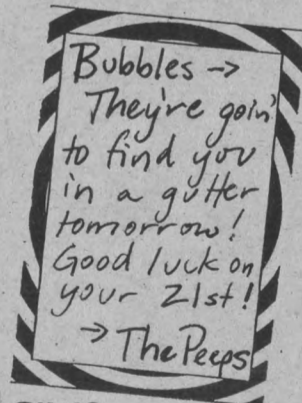 Bubbles ->
They're goin'
to find you
in a gutter
tomorrow!
Good luck on
your 21st!
-> The Peeps